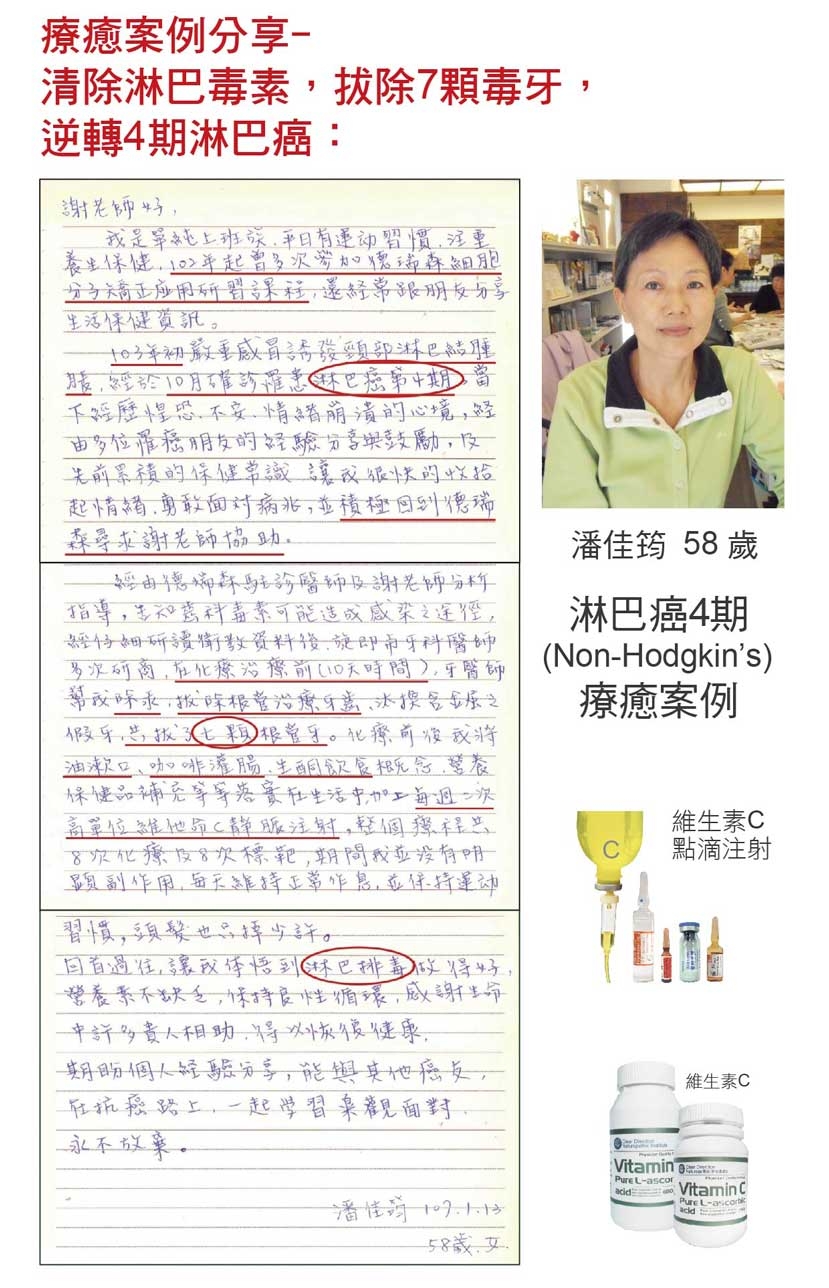 療癒案例分享-
清除淋巴毒素，拔除7顆毒牙，
逆轉4期淋巴癌：
謝老師好，
我是單純上班族，平日有運动習慣，注重
養生保健，102年起曾多次參加德瑞森細胞
分子矯正应用研習課程，還經常跟朋友分享
生活保健資訊。
103年初嚴重感冒誘發頸部淋巴結腫
脹，經於10月確診罹患淋巴癌第4期，當
下經歷惶恐、不安、情緒崩潰的心境，經
由多位罹癌朋友的經驗分享與鼓勵，及
先前累積的保健常識 讓我很快的收拾
起情緒，勇敢面对病兆，並積極回到德瑞
森尋求謝老師協助。
經由德瑞森駐診醫師及謝老師分析
指導，告知齒科毒素可能造成感染之途徑，
經仔細研讀衛教資料後，旋即向牙科醫師
多次研商，在化療治療前(10天時間)，牙醫師
幫我除汞，拔除根管治療牙齒、汰換含金屬之
假牙，共拔了七顆根管牙。化療前後我將
油漱口、咖啡灌腸、生酮飲食概念、營養
保健品補充等等落實在生活中，加上每週二次
高單位維他命C靜脈注射，整個療程共
8次化療及8次標靶，期間我並没有明
顯副作用，每天維持正常作息，並保持運动
習慣，頭髮也只掉少許。
回首過往，讓我体悟到淋巴排毒做得好，
營養素不缺乏，保持良性循環，感謝生命
中許多貴人相助，得以恢復健康，
期盼個人經驗分享，能與其他癌友，
在抗癌路上，一起学習樂觀面對，
永不放棄。
潘佳筠 107.1.13
58歲.女
潘佳筠 58 歲
淋巴癌4期
(Non-Hodgkin's)
療癒案例
維生素C
點滴注射
C
維生素C
Clear Direction
Naturopathic Institute
Vitamin
Pure L-ascor
acid
Clear Direction
Naturopathic Institute
Vitamin C
Pure L-ascorbic
acid